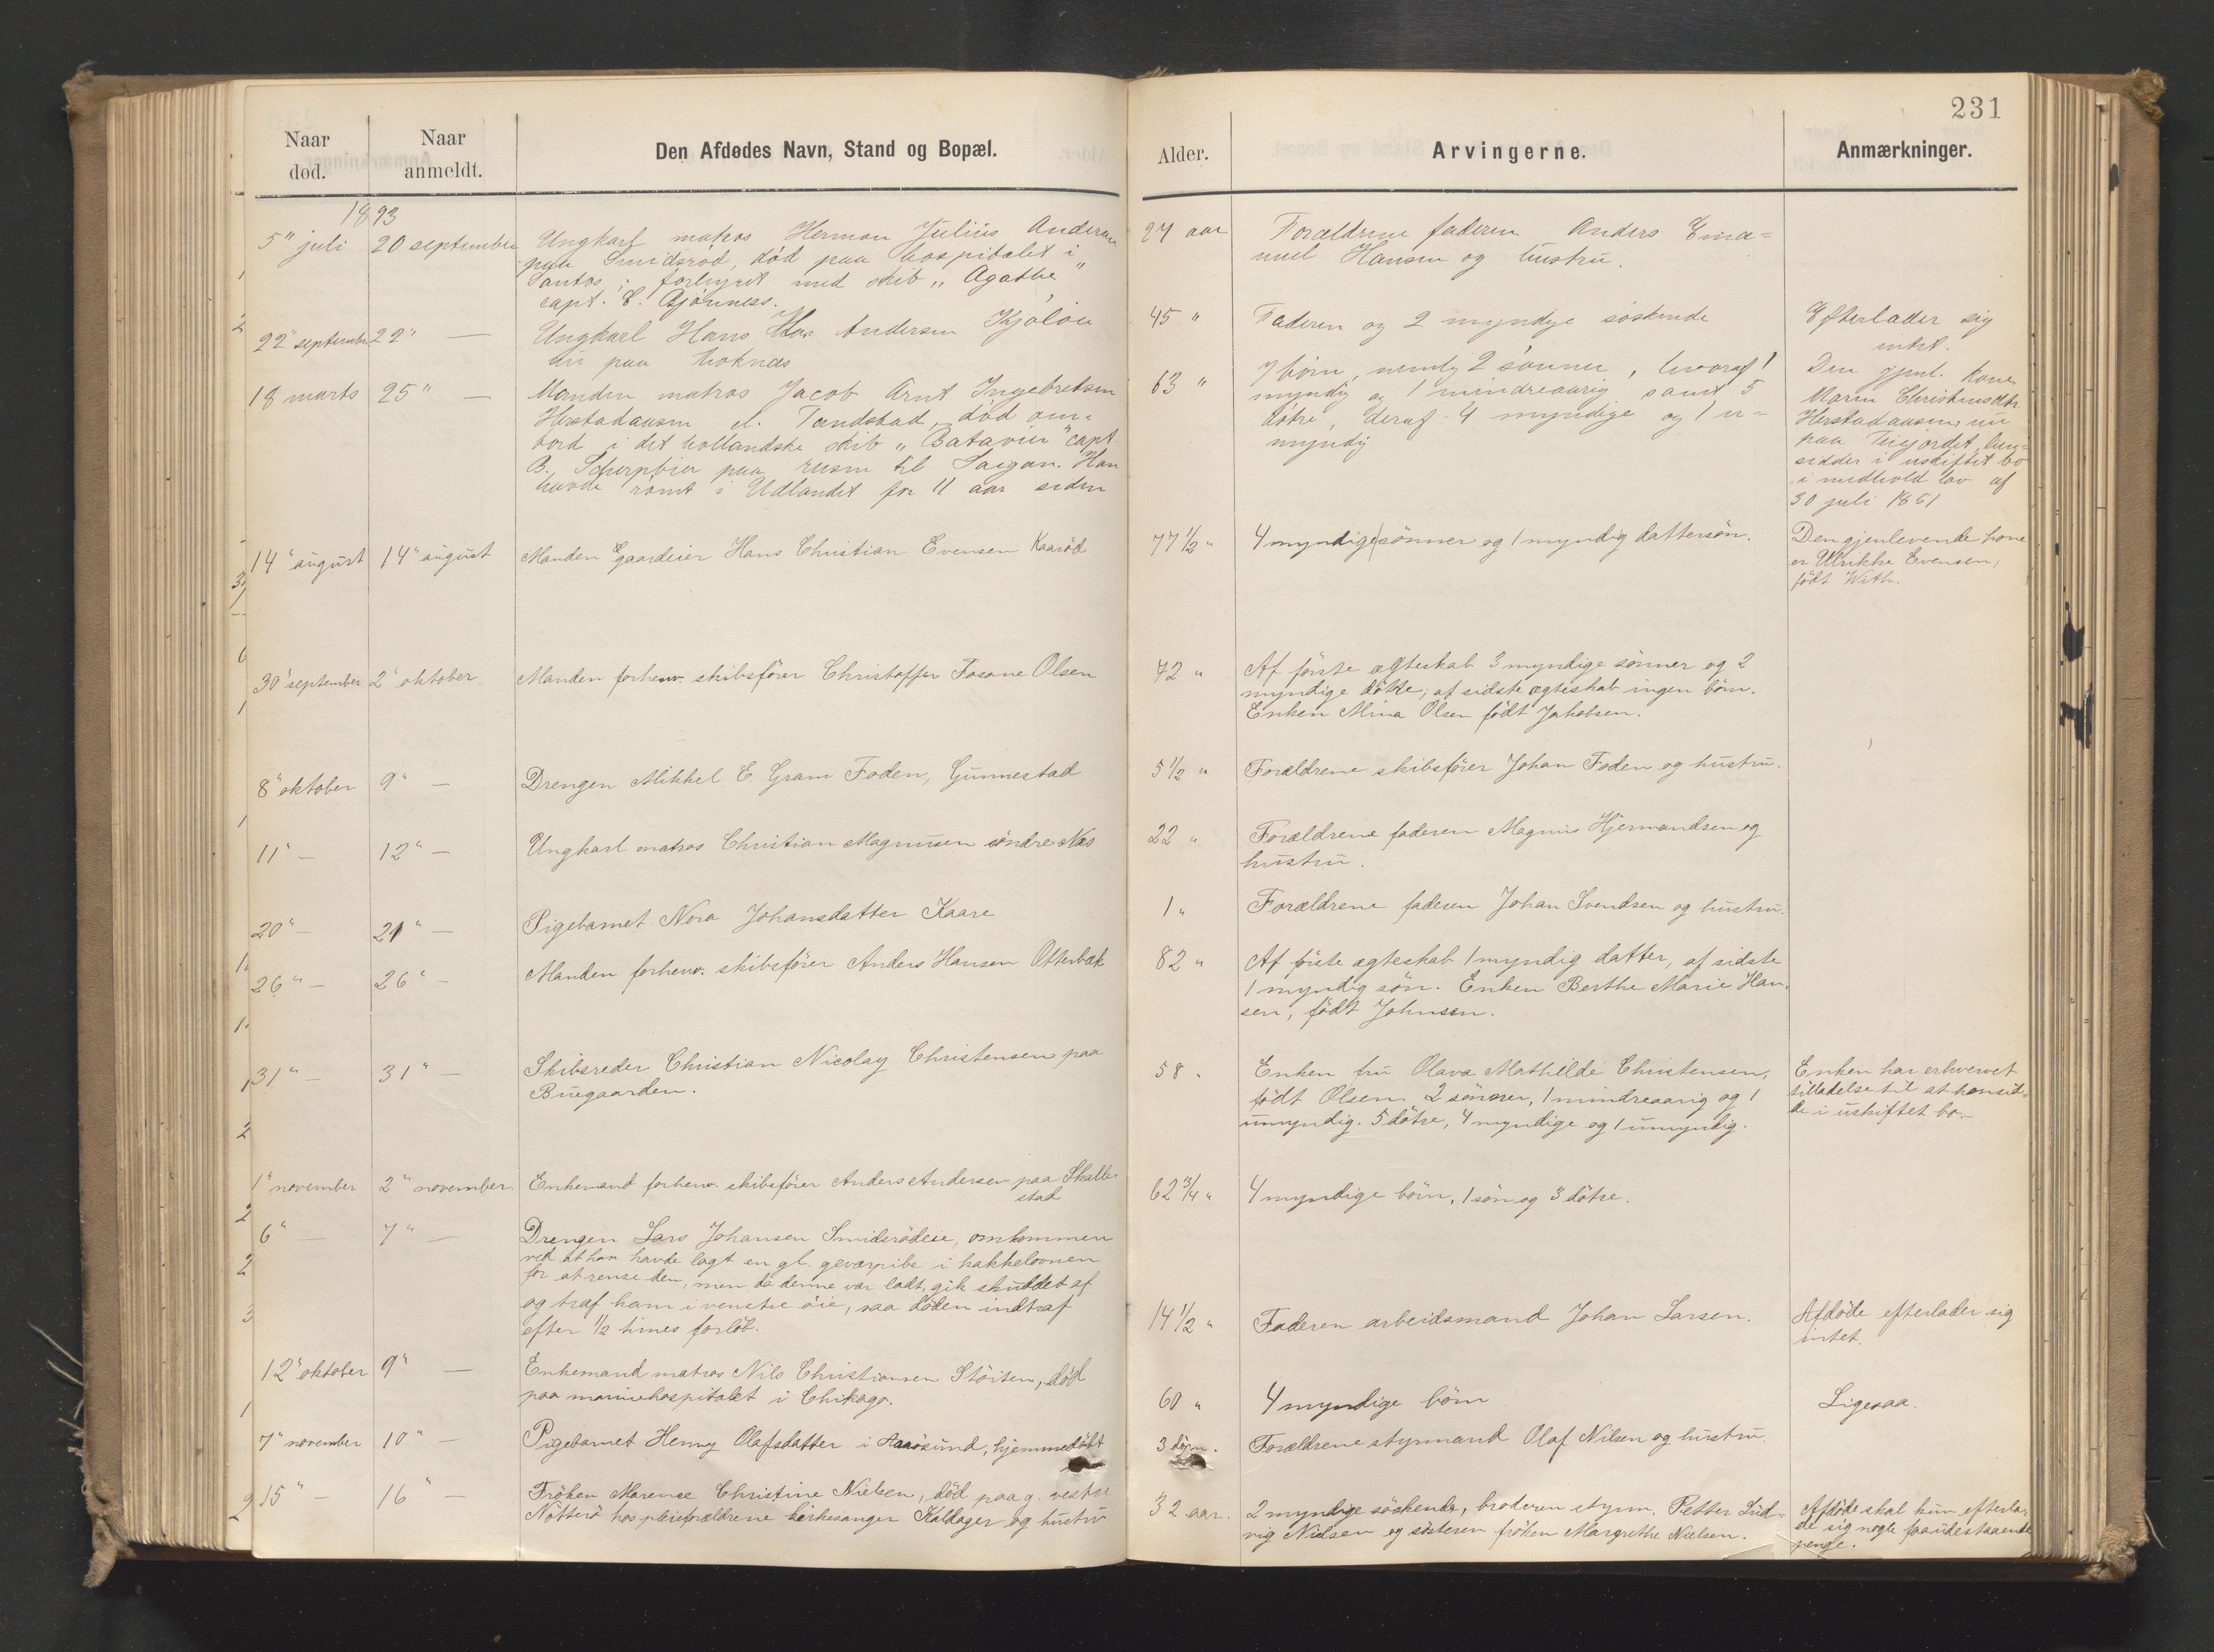 231
Naar død.
Naar anmeldt.
Den Afdødes Navn, Stand og Bopæl.
Alder.
Arvingerne.
Anmærkninger.
1893
5" juli 20 september Ungkarl matros Herman Julius Andersen
paa Smidsrød, død paa hospitalet i
Santos, forhyret med skib "Agathe"
capt. E. Bjönness.
24 aar
Forældrene faderen Anders Ema=
nuel Hansen og hustru.
22" september 22" — Ungkarl Hans Andersen Kjöløe
nu paa
45 "
Faderen og 2 myndige søskende
Efterlader sig
intet.
18 marts 25" — Manden matros Jacob Arnt Ingebretsen
Herstadaasen el. Tandstad, død om=
bord i det hollandske skib "Batavier" capt.
B. Scherpbier paa reisen til Saigon. Han
havde römt i Udlandet for 11 aar siden
63 "
7 börn, nemlig 2 sönner, hvoraf 1
myndig og 1 mindreaarig samt 5
dötre, deraf 4 myndige og 1 u=
myndig
Den gjenl. kone
Maren Christensdtr
Herstadaasen, nu
paa Teiejordet, hen=
sidder i uskiftet bo
i medhold lov af
30 juli 1851
14" august 14" august Manden gaardeier Hans Christian Evensen Kaarød
77 1/2 "
4 myndige sönner og 1 myndig dattersön.
Den gjenlevende kone
er Ulrikke Evensen,
födt With.
30" september 2" oktober. Manden forhenv. skibsförer Christoffer Fosane Olsen
72 "
Af förste ægteskab 3 myndige sönner og 2
myndige dötre; af sidste ægteskab ingen börn.
Enken Mina Olsen födt Jakobsen.
8" oktober 9" — Drengen Mikkel E. Gram Foden, Gunnestad
5 1/2 "
Forældrene skibsförer Johan Foden og hustru.
11" — 12" — Ungkarl matros Christian Magnusen söndre Nes
22 "
Forældrene faderen Magnus Hjermandsen og
hustru.
20" — 21" — Pigebarnet Nora Johansdatter Kaare
1 "
Forældrene faderen Johan Svendsen og hustru.
26" — 26" — Manden forhenv. skibsförer Anders Hansen Otterbæk
82 "
Af förste ægteskab 1 myndig datter, af sidste
1 myndig sön. Enken Berthe Marie Han=
sen, födt Johnsen.
31" — 31" — Skibsreder Christian Nicolay Christensen paa
Buegaarden.
58 "
Enken fru Olava Mathilde Christensen,
födt Olsen. 2 sönner, 1 mindreaarig og 1
umyndig. 5 dötre, 4 myndige og 1 umyndig.
Enken har erhvervet
tilladelse til at hensid=
de i uskiftet bo.—
1" november 2" november. Enkemand forhenv. skibsförer Anders Andersen paa Skalle=
stad
62 3/4 "
4 myndige börn, 1 sön og 3 dötre.
6" — 7" — Drengen Lars Johansen Smidsrödeie, omkommen
ved at han havde lagt en gl. geværpibe i kakkelovnen
for at rense den, men da denne var ladt, gik skuddet af
og traf ham i venstre öie, saa döden indtraf
efter 1/2 times forløb.
14 1/2 "
Faderen arbeidsmand Johan Larsen.
Afdöde efterlader sig
intet.
12" oktober 9" — Enkemand matros Nils Christiansen Stöiten, död
paa marinehospitalet i Chikago.
60 "
4 myndige börn
Ligesaa.
7" november 10" — Pigebarnet Henny Olafsdatter i Aarösund, hjemmedöbt
3 dögn.
Forældrene styrmand Olaf Nilsen og hustru
15" — 16" — Fröken Marense Christine Nielsen, död paa g. vestre
Nötterö hos pleieforældrene kirkesanger Kaldager og hustru
32 aar.
2 myndige söskende, broderen styrm. Petter Lud=
vig Nielsen og sösteren fröken Margrethe Nielsen.
Afdöde skal kun efterla=
de sig nogle faa udestaaende
penge.